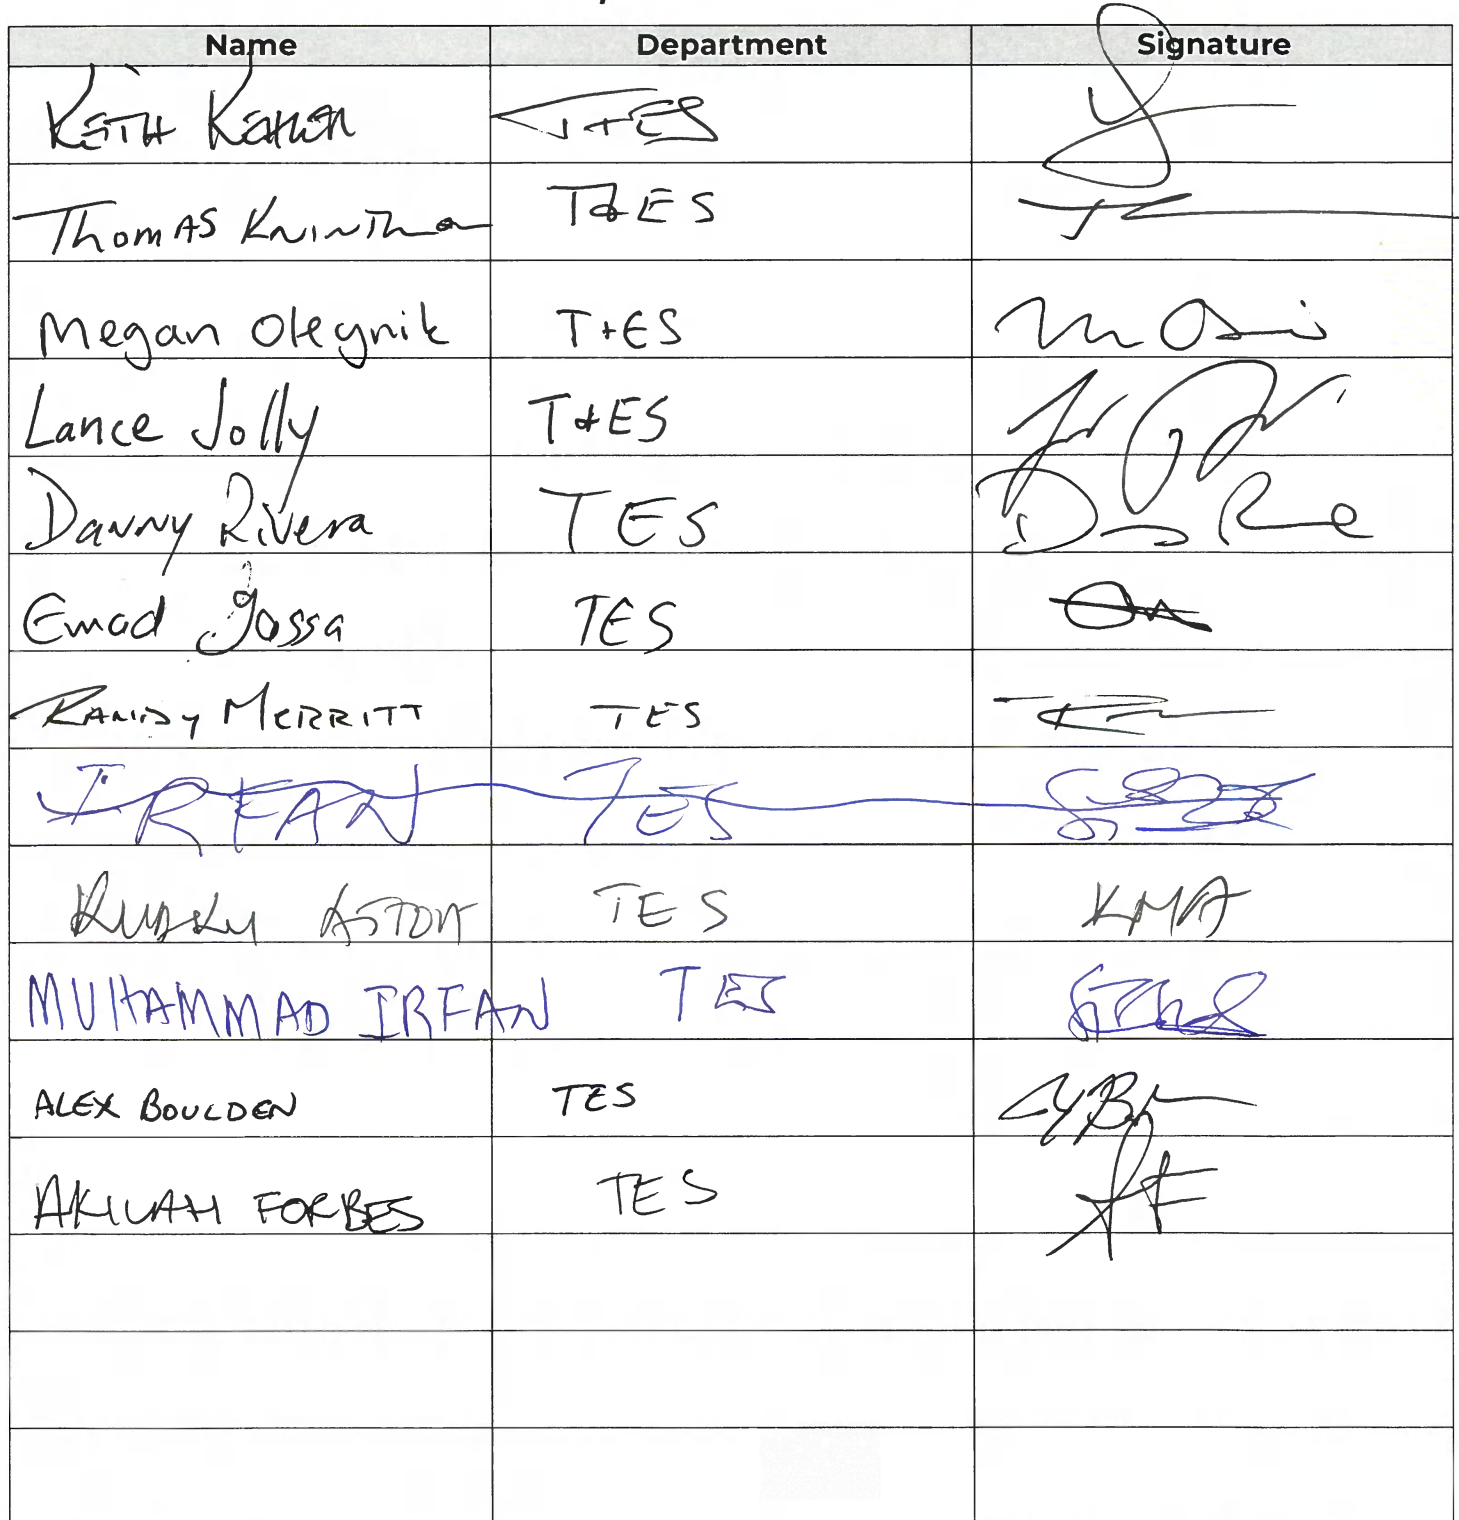 Name Department Signature
KEITH T+ES
THOMAS T&ES
Megan Olegnik T+ES
Lance Jolly T&ES
Danny Rivera TES
Emad Gossa TES
RANDY MERRITT TES
IRFAN TES
ASTON TES KMA
MUHAMMAD IRFAN TES
ALEX BOULDEN TES
AKILAH FORBES TES